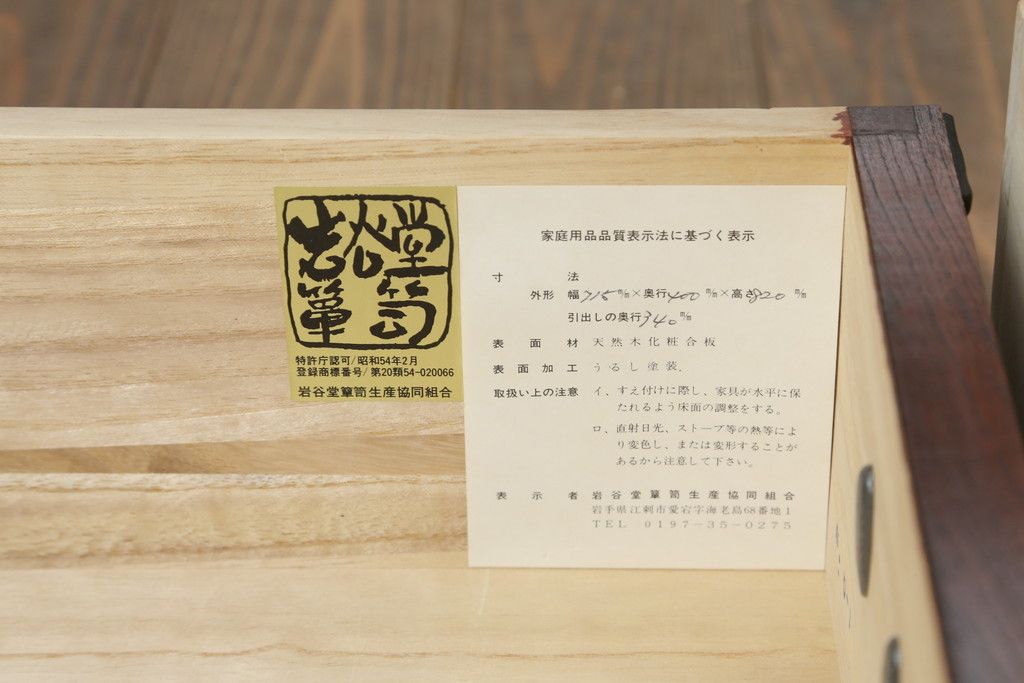 岩谷堂
簞笥
特許庁認可/昭和54年2月
登録商標番号/第20類54-020066
岩谷堂簞笥生産協同組合
家庭用品品質表示法に基づく表示
寸法
外形 幅715m/m×奥行400m/m×高さ820m/m
引出しの奥行340m/m
表面材 天然木化粧合板
表面加工 うるし塗装.
取扱い上の注意 イ、すえ付けに際し、家具が水平に保
たれるよう床面の調整をする。
ロ、直射日光、ストーブ等の熱等によ
り変色し、または変形することが
あるから注意して下さい。
表示者 岩谷堂簞笥生産協同組合
岩手県江刺市愛宕字海老島68番地1
TEL 0197-35-0275